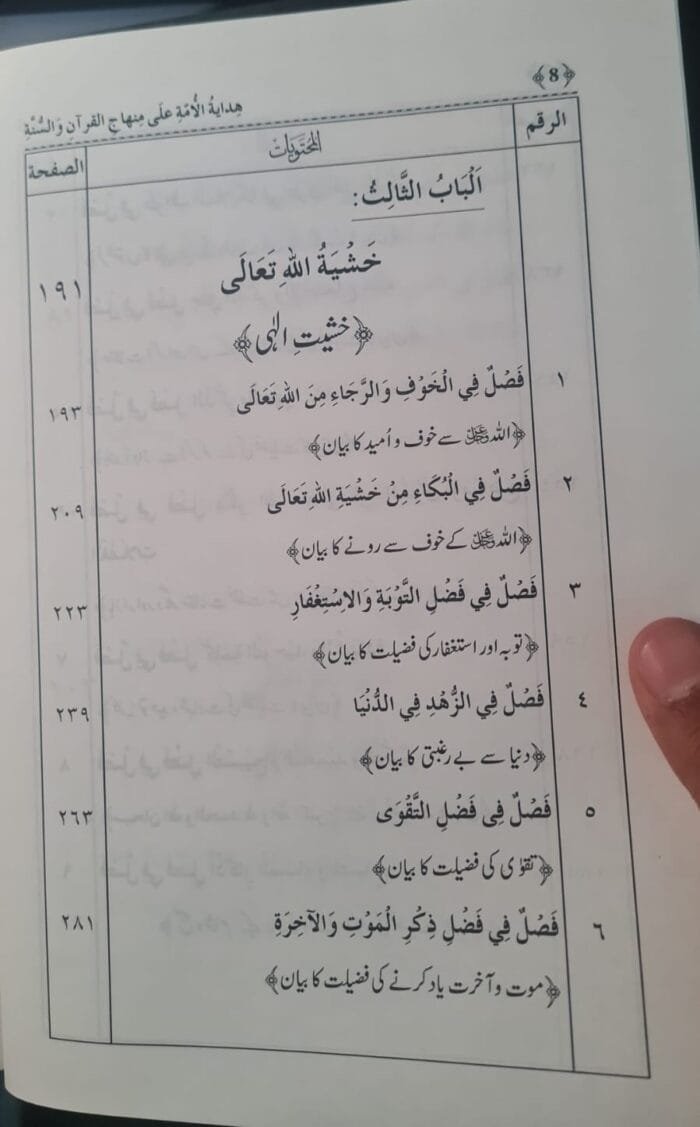 ﴿8﴾
هِدايةُ الأُمّةِ علَى مِنهاجِ القرآنِ وَالسُّنَّةِ
الرقم المحتويات الصفحة
اَلْبَابُ الثَّالِثُ:
خَشْيَةُ اللهِ تَعَالَى ١٩١
﴿خشیتِ الٰہی﴾
١ فَصْلٌ فِي الْخَوْفِ وَالرَّجَاءِ مِنَ اللهِ تَعَالَى ١٩٣
﴿اللہ عزوجل سے خوف و اُمید کا بیان﴾
٢ فَصْلٌ فِي الْبُكَاءِ مِنْ خَشْيَةِ اللهِ تَعَالَى ٢٠٩
﴿اللہ عزوجل کے خوف سے رونے کا بیان﴾
٣ فَصْلٌ فِي فَضْلِ التَّوْبَةِ وَالاِسْتِغْفَارِ ٢٢٣
﴿توبہ اور استغفار کی فضیلت کا بیان﴾
٤ فَصْلٌ فِي الزُّهْدِ فِي الدُّنْيَا ٢٣٩
﴿دنیا سے بے رغبتی کا بیان﴾
٥ فَصْلٌ فِی فَضْلِ التَّقْوَى ٢٦٣
﴿تقوٰی کی فضیلت کا بیان﴾
٦ فَصْلٌ فِي فَضْلِ ذِكْرِ الْمَوْتِ وَالآخِرَةِ ٢٨١
﴿موت و آخرت یاد کرنے کی فضیلت کا بیان﴾